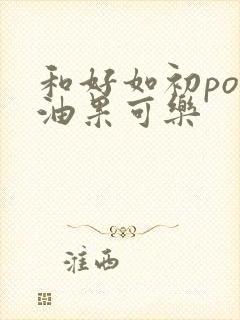 和好如初po
油果可樂
淮西